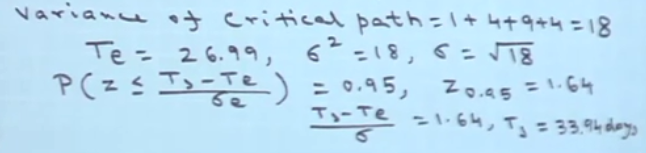 Variance of critical path = 1 + 4 + 9 + 4 = 18
Te = 26.99, σ² = 18, σ = √18
P(z ≤ Ts - Te / σe) = 0.95, Z0.95 = 1.64
Ts - Te / σ = 1.64, Ts = 33.94 days